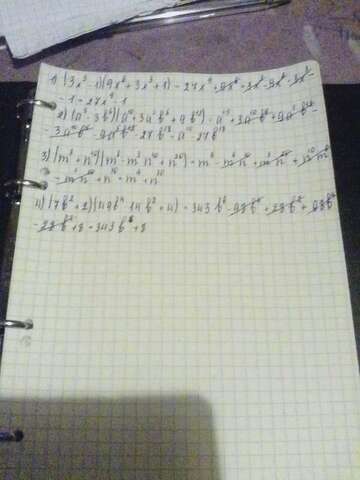 1) (3x³-1)(9x⁶+3x³+1) = 27x⁹+9x⁶+3x³-9x⁶-3x³-
-1 = 27x⁹-1
2) (a⁵-3b⁶)(a¹⁰+3a⁵b⁶+9b¹²) = a¹⁵+3a¹⁰b⁶+9a⁵b¹²-
-3a¹⁰b⁶-9a⁵b¹²-27b¹⁸ = a¹⁵-27b¹⁸
3) (m³+n¹⁰)(m⁶-m³n¹⁰+n²⁰) = m⁹-m⁶n¹⁰+m³n²⁰+n¹⁰m⁶-
-m³n²⁰+n³⁰ = m⁹+n³⁰
4) (7b²+2)(49b⁴-14b²+4) = 343b⁶-98b⁴+28b²+98b⁴-
-28b²+8 = 343b⁶+8